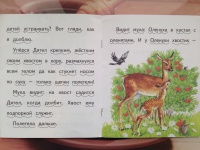 детей устраивать? Вот гляди, как
я долблю.
Упёрся Дятел крепким, жёстким
своим хвостом в кору, размахнулся
всем телом да как стукнет носом
по суку — только щепки полетели!
Муха видит: не хвост садится
Дятел, когда долбит. Хвост ему
подпоркой служит.
Полетела дальше.
Видит муха Оленуха в кустах с
оленятами. И у Оленухи хвостик —